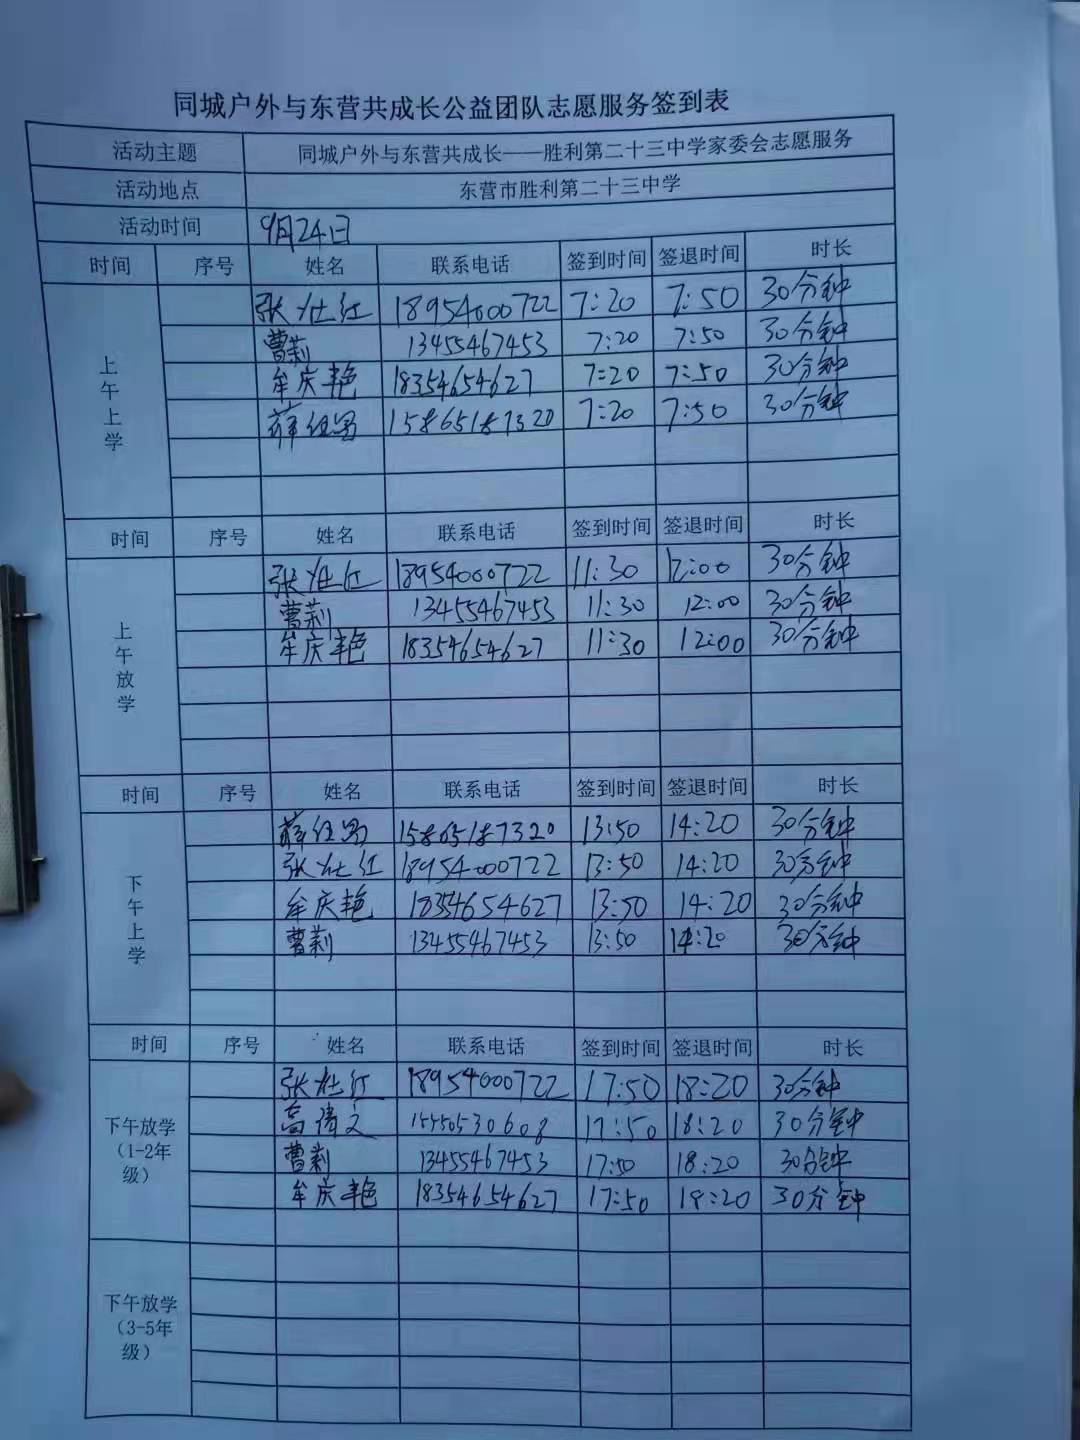 同城户外与东营共成长公益团队志愿服务签到表
活动主题 同城户外与东营共成长——胜利第二十三中学家委会志愿服务
活动地点 东营市胜利第二十三中学
活动时间 9月24日
时间 序号 姓名 联系电话 签到时间 签退时间 时长
上午上学
张 红 18954000722 7:20 7:50 30分钟
曹莉 13455467453 7:20 7:50 30分钟
牟庆艳 18354654627 7:20 7:50 30分钟
薛 15865187320 7:20 7:50 30分钟
时间 序号 姓名 联系电话 签到时间 签退时间 时长
上午放学
张 红 18954000722 11:30 12:00 30分钟
曹莉 13455467453 11:30 12:00 30分钟
牟庆艳 18354654627 11:30 12:00 30分钟
时间 序号 姓名 联系电话 签到时间 签退时间 时长
下午上学
薛 15865187320 13:50 14:20 30分钟
张 红 18954000722 13:50 14:20 30分钟
牟庆艳 18354654627 13:50 14:20 30分钟
曹莉 13455467453 13:50 14:20 30分钟
时间 序号 姓名 联系电话 签到时间 签退时间 时长
下午放学
(1-2年
级)
张 红 18954000722 17:50 18:20 30分钟
高 文 15550530608 17:50 18:20 30分钟
曹莉 13455467453 17:50 18:20 30分钟
牟庆艳 18354654627 17:50 18:20 30分钟
下午放学
(3-5年
级)